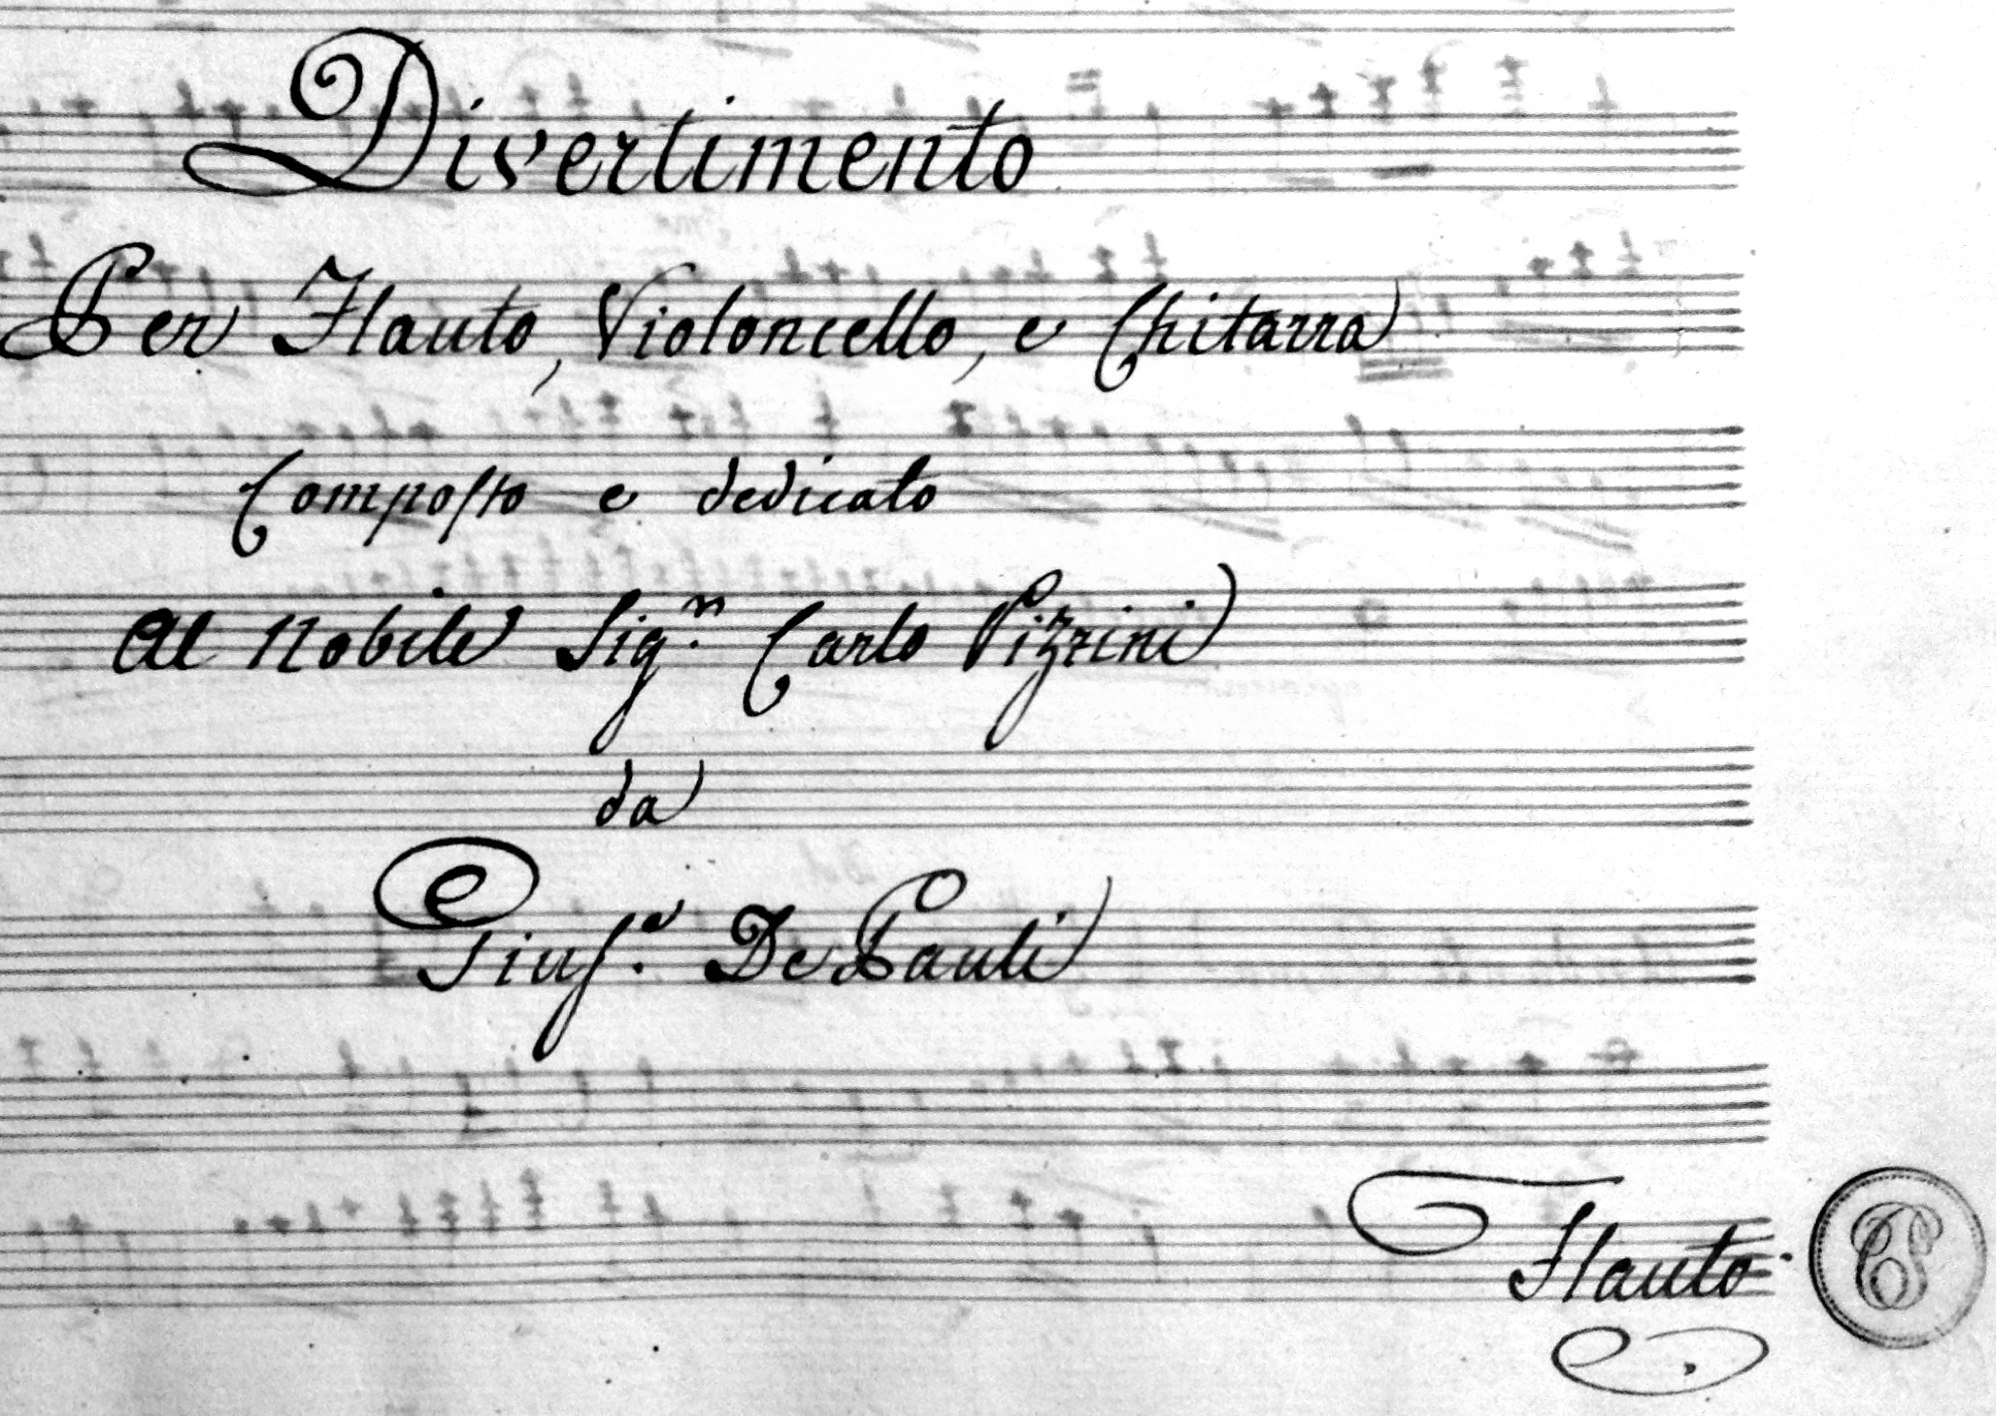 Divertimento
Per Flauto, Violoncello, e Chitarra
Composto e dedicato
Al Nobile Sig.r Carlo Pizzini
da
Gius.e De Pauli
Flauto